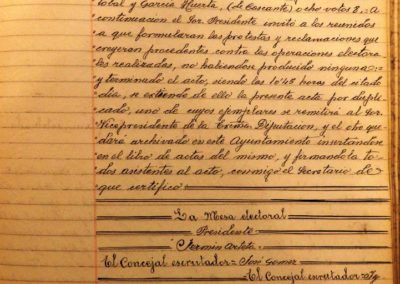 tobal y García Huerta, (de Cascante) ocho votos 8. A
continuacion el Sor. Presidente invitó a los reunidos
a que formularan las protestas y reclamaciones que
creyeran procedentes contra las operaciones electora
les realizadas, no habiendose producido ninguna
y terminado el acto, siendo las 10'43 horas del citado
dia, se extiende de ello la presente acta por dupli
cado, uno de cuyos ejemplares se remitirá al Sor.
Vicepresidente de la Excma. Diputacion, y el otro que
dará archivado en este Ayuntamiento insertandose
en el libro de actas del mismo, y firmandola to
dos asistentes al acto, conmigo el Secretario de
que certifico
La Mesa electoral
Presidente
Fermin
El Concejal escrutador = José Gomez
El Concejal escrutador =